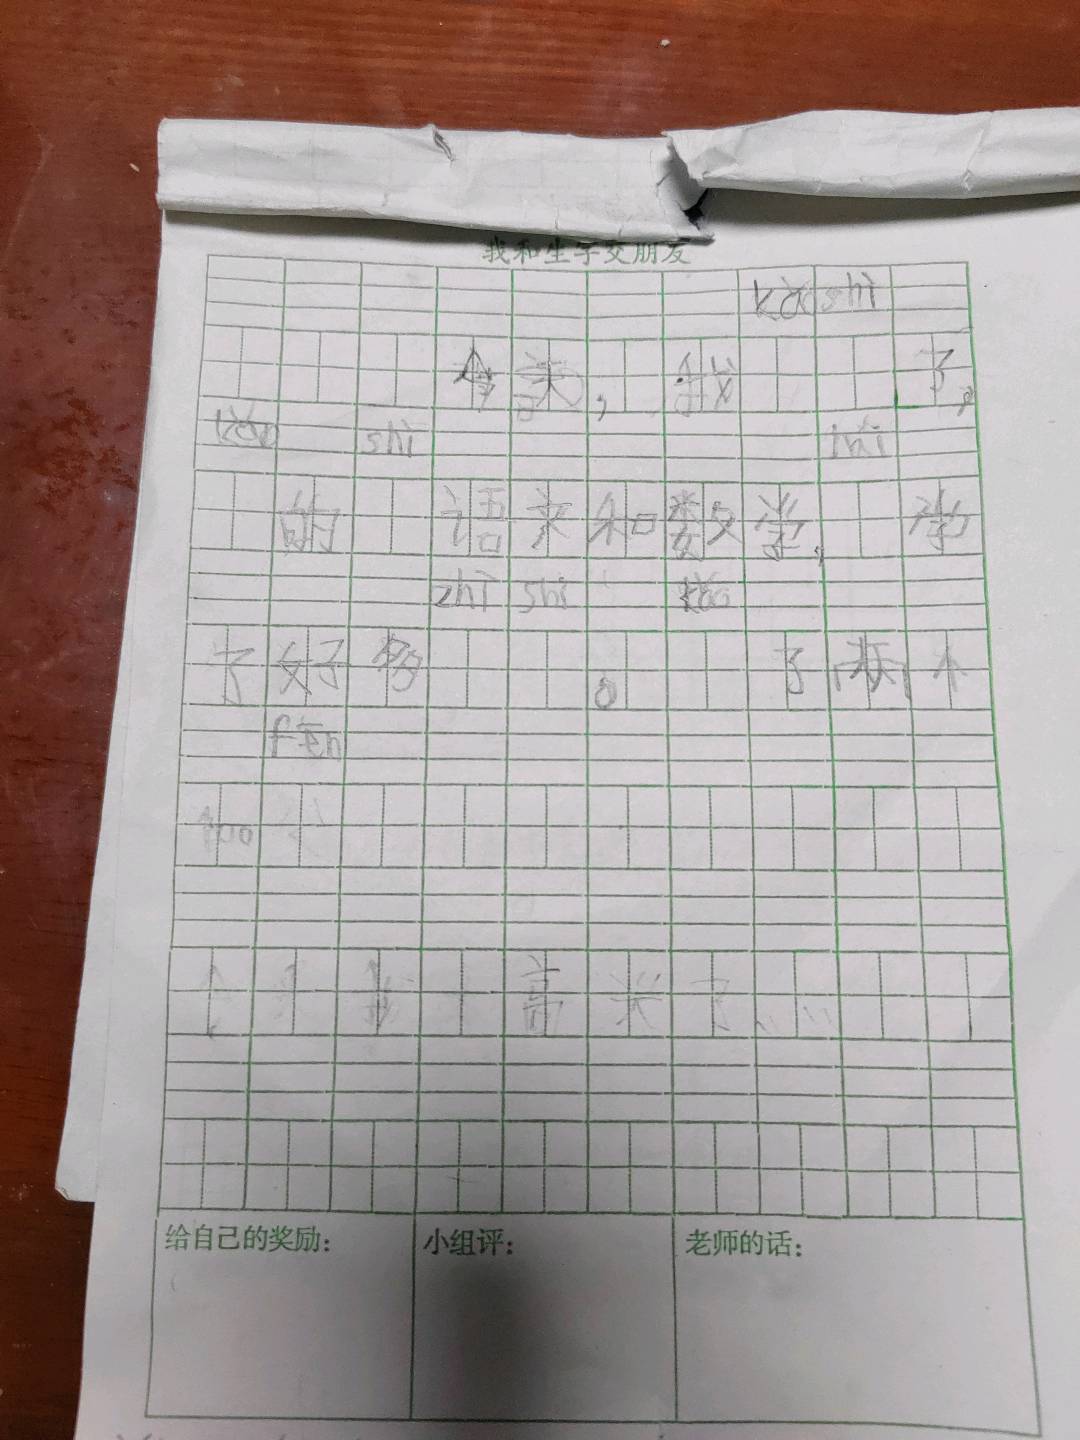 我和生字交朋友
kǎo shì
今天,我 了,
kǎo shì hái
的 语文和数学, 学
zhī shi kǎo
了好多 。 了两个
fēn
100
高兴了
给自己的奖励: 小组评: 老师的话: